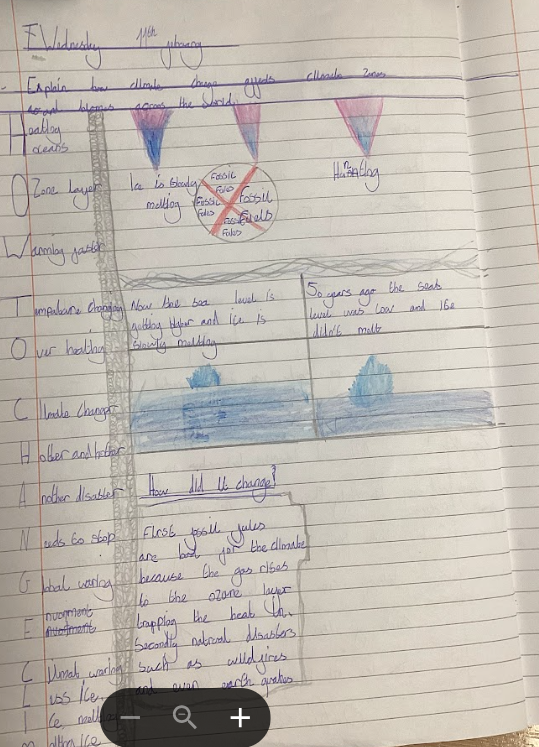 Wednesday 11th
Explain how climate change effects climate zones
across the world.
Heating
oceans
Ozone layer
Warming faster
Temperature changing
Over heating
Climate changes
Hotter and hotter
Another disaster
Needs to stop
Global waring
Enviorment
Climate waring
Less Ice
Ice
Ice
Ice is slowly
melting
Fossil
Fules
Fossil
Fuels
Fossil
Fules
Now the sea level is
getting higher and ice is
slowly melting
50 years ago the seas
level was low and ice
didn't melt
How did it change?
First fossil fules
are bad for the climate
because the gas rises
to the ozone layer
trapping the heat in.
Secondly natural disasters
such as wildfires
and even earth quakes